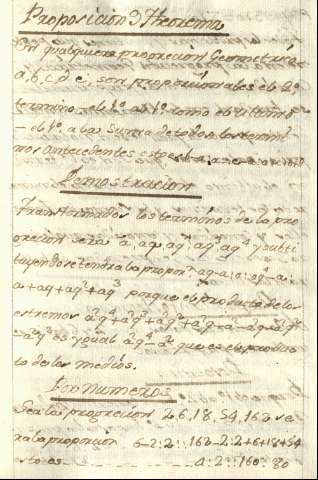 Proposicion 9 Theorema
En qualquiera progrecion Geometrica
a, b, c, d, e, son proporcionales el 2º
termino - el 1º al 1º como el ultimo
- el 1º a la suma de todos los termi
nos antecedentes esto es b-a: a::
Demostracion
Transformados los terminos de la pro
grecion sera a, aq, aq², aq³, aq⁴ y substi
tuyendo se tendra la propon aq-a: a: aq⁴-a:
a+aq+aq²+aq³ porque el producto de los
estremos
es ygual a²q⁴-a² que es el produc
to de los medios.
Por numeros
Sea la progrecion 2, 6, 18, 54, 162 se
ra la proporcion 6-2:2::162-2:2+6+18+54
esto es 4:2::160:80